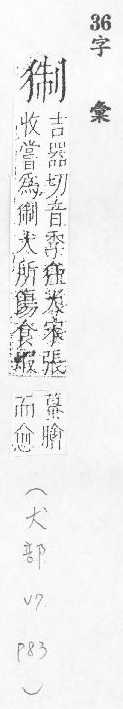 36
字彙
猘
吉器切音季狂犬宋張
收嘗爲猘犬所傷食蝦
蟇膾
而愈
(犬部 V7 P83)